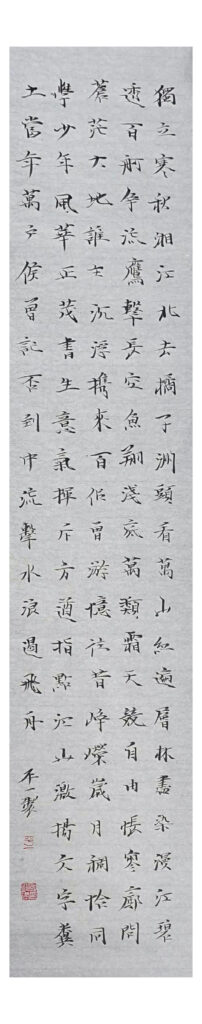 獨立寒秋湘江北去橘子洲頭看萬山紅遍層林盡染漫江碧
透百舸爭流鷹擊長空魚翔淺底萬類霜天競自由悵寥廓問
蒼茫大地誰主沉浮攜來百侶曾游憶往昔崢嶸歲月稠恰同
學少年風華正茂書生意氣揮斥方遒指點江山激揚文字糞
土當年萬戶侯曾記否到中流擊水浪遏飛舟
不一